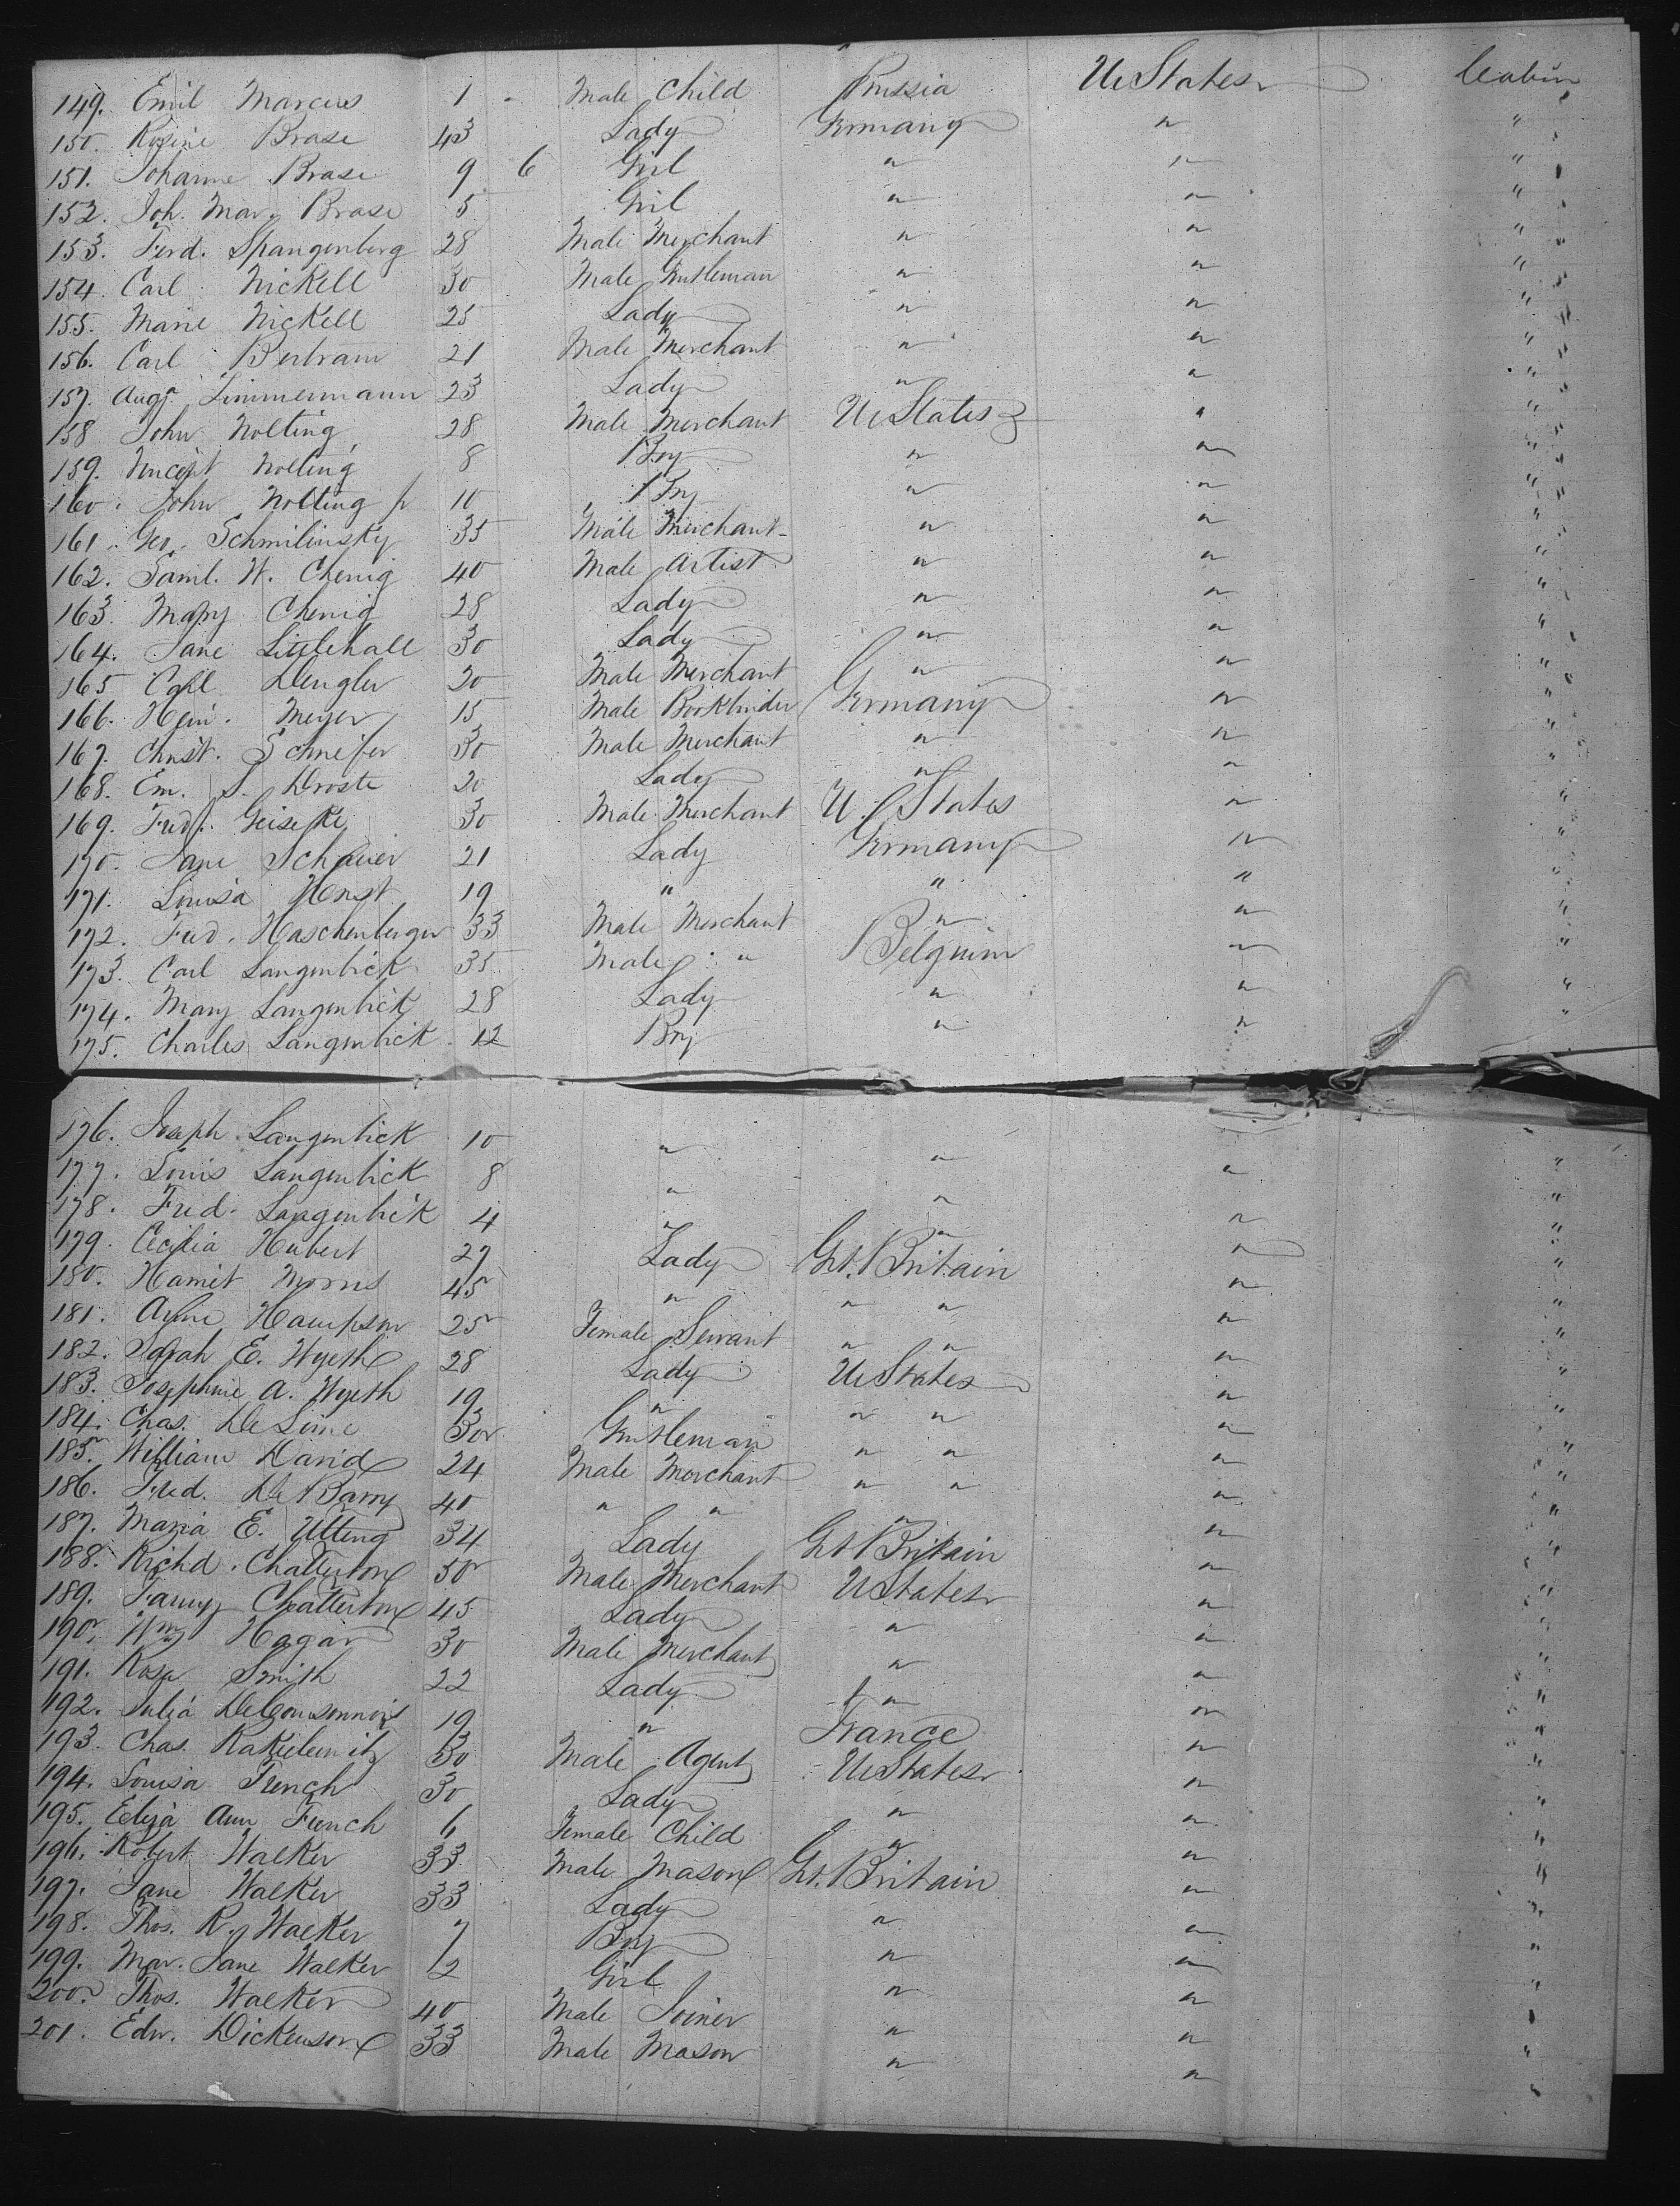 149. Emil Marcus 1 - Male Child Prussia U. States Cabin
150. Rosine Brase 43 Lady Germany " "
151. Johanne Brase 9 6 Girl " " "
152. Joh. Mar. Brase 5 Girl " " "
153. Ferd. Spangenberg 28 Male Merchant " " "
154. Carl Nickell 30 Male Gentleman " " "
155. Marie Nickell 25 Lady " " "
156. Carl Bertram 21 Male Merchant " " "
157. Augt. Zimmermann 23 Lady " " "
158 John Nolting 28 Male Merchant U. States " "
159. Vincent Nolting 8 Boy " " "
160. John Nolting jr 10 Boy " " "
161. Geo. Schmilinsky 35 Male Merchant " " "
162. Saml. W. Chenig 40 Male Artist " " "
163. Mary Chenig 28 Lady " " "
164. Jane Littlehall 30 Lady " " "
165 Carl Dengler 20 Male Merchant " " "
166. Hein. Meyer 15 Male Bookbinder Germany " "
167. Christ. Schneifer 30 Male Merchant " " "
168. Em. S. Droste 20 Lady " " "
169. Fred. Geiseke 30 Male Merchant U. States " "
170. Jane Schauer 21 Lady Germany " "
171. Louisa Horst 19 " " " "
172. Fred. Haschenberger 33 Male Merchant " " "
173. Carl Langenbick 35 Male " Belguim " "
174. Mary Langenbick 28 Lady " " "
175. Charles Langenbick 12 Boy " " "
176. Joseph Langenbick 10 " " "
177. Louis Langenbick 8 " " " "
178. Fred. Langenbick 4 " " " "
179. Cecilia Hubert 27 Lady Gt. Britain " "
180. Harriet Morris 45 " " " " "
181. Anne Hampson 25 Female Servant " " " "
182. Sarah E. Wyeth 28 Lady U. States " "
183. Josephine A. Wyeth 19 " " " " "
184. Chas. De Lime 30 Gentleman " " " "
185. William David 24 Male Merchant " " " "
186. Fred. De Barry 40 " " " " "
187. Maria E. Utting 34 Lady Gt Britain " "
188. Richd. Chatterton 50 Male Merchant U States " "
189. Fanny Chatterton 45 Lady " " "
190. Wm Hagar 30 Male Merchant " " "
191. Rosa Smith 22 Lady " " "
192. Julia 19 " France " "
193. Chas. 30 Male Agent U. States " "
194. Louisa French 30 Lady " " "
195. Eliza Ann French 6 Female Child " " "
196. Robert Walker 33 Male Mason Gt. Britain " "
197. Jane Walker 33 Lady " " "
198. Thos. R. Walker 7 Boy " " "
199. Mar. Jane Walker 1/2 Girl " " "
200. Thos. Walker 40 Male Joiner " " "
201. Edw. Dickenson 33 Male Mason " " "